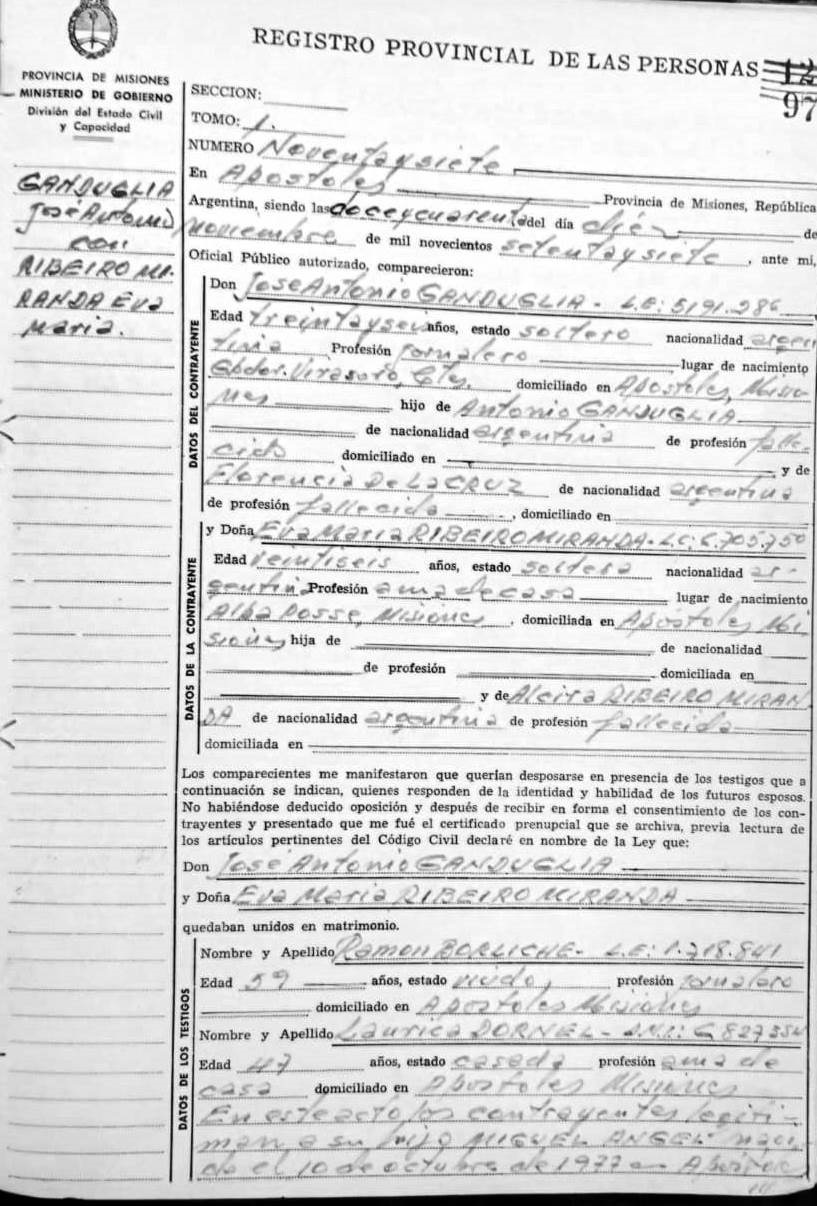 REGISTRO PROVINCIAL DE LAS PERSONAS
12
97
PROVINCIA DE MISIONES
MINISTERIO DE GOBIERNO
División del Estado Civil
y Capacidad
GANDUGLIA
José Antonio
con
RIBEIRO MI-
RANDA Eva
Maria.
SECCION:
TOMO: 1.
NUMERO Noventaysiete
En Apostoles Provincia de Misiones, República
Argentina, siendo las doceycuarenta del día diéz de
noviembre de mil novecientos setentaysiete, ante mí,
Oficial Público autorizado, comparecieron:
DATOS DEL CONTRAYENTE
Don Jose Antonio GANDUGLIA - L.E: 5191.286
Edad treintayseis años, estado soltero nacionalidad argen
tina Profesión jornalero lugar de nacimiento
Gbdor. Virasoro, Ctes. domiciliado en Apostoles, Misio-
nes hijo de Antonio GANDUGLIA
de nacionalidad argentina de profesión falle-
cido domiciliado en y de
Florencia De La CRUZ de nacionalidad argentina
de profesión fallecida, domiciliado en
DATOS DE LA CONTRAYENTE
y Doña Eva Maria RIBEIRO MIRANDA - L.C: 6.705.750
Edad veintiseis años, estado soltera nacionalidad ar-
gentina Profesión ama de casa lugar de nacimiento
Alba Posse, Misiones, domiciliada en Apostoles Mi-
siones hija de de nacionalidad
de profesión domiciliada en
y de Alcira RIBEIRO MIRAN-
DA de nacionalidad argentina de profesión fallecida
domiciliada en
Los comparecientes me manifestaron que querían desposarse en presencia de los testigos que a
continuación se indican, quienes responden de la identidad y habilidad de los futuros esposos.
No habiéndose deducido oposición y después de recibir en forma el consentimiento de los con-
trayentes y presentado que me fué el certificado prenupcial que se archiva, previa lectura de
los artículos pertinentes del Código Civil declaré en nombre de la Ley que:
Don José Antonio GANDUGLIA
y Doña Eva Maria RIBEIRO MIRANDA
quedaban unidos en matrimonio.
DATOS DE LOS TESTIGOS
Nombre y Apellido Ramon BORLICHE - L.E: 1.718.841
Edad 59 años, estado viudo, profesión jornalero
domiciliado en Apostoles Misiones
Nombre y Apellido Laurica DORNEL - D.N.I: 6827354
Edad 47 años, estado casada profesión ama de
casa domiciliado en Apostoles Misiones
En este acto los contrayentes legiti-
man a su hijo MIGUEL ANGEL naci-
do el 10 de octubre de 1977 en Apostoles